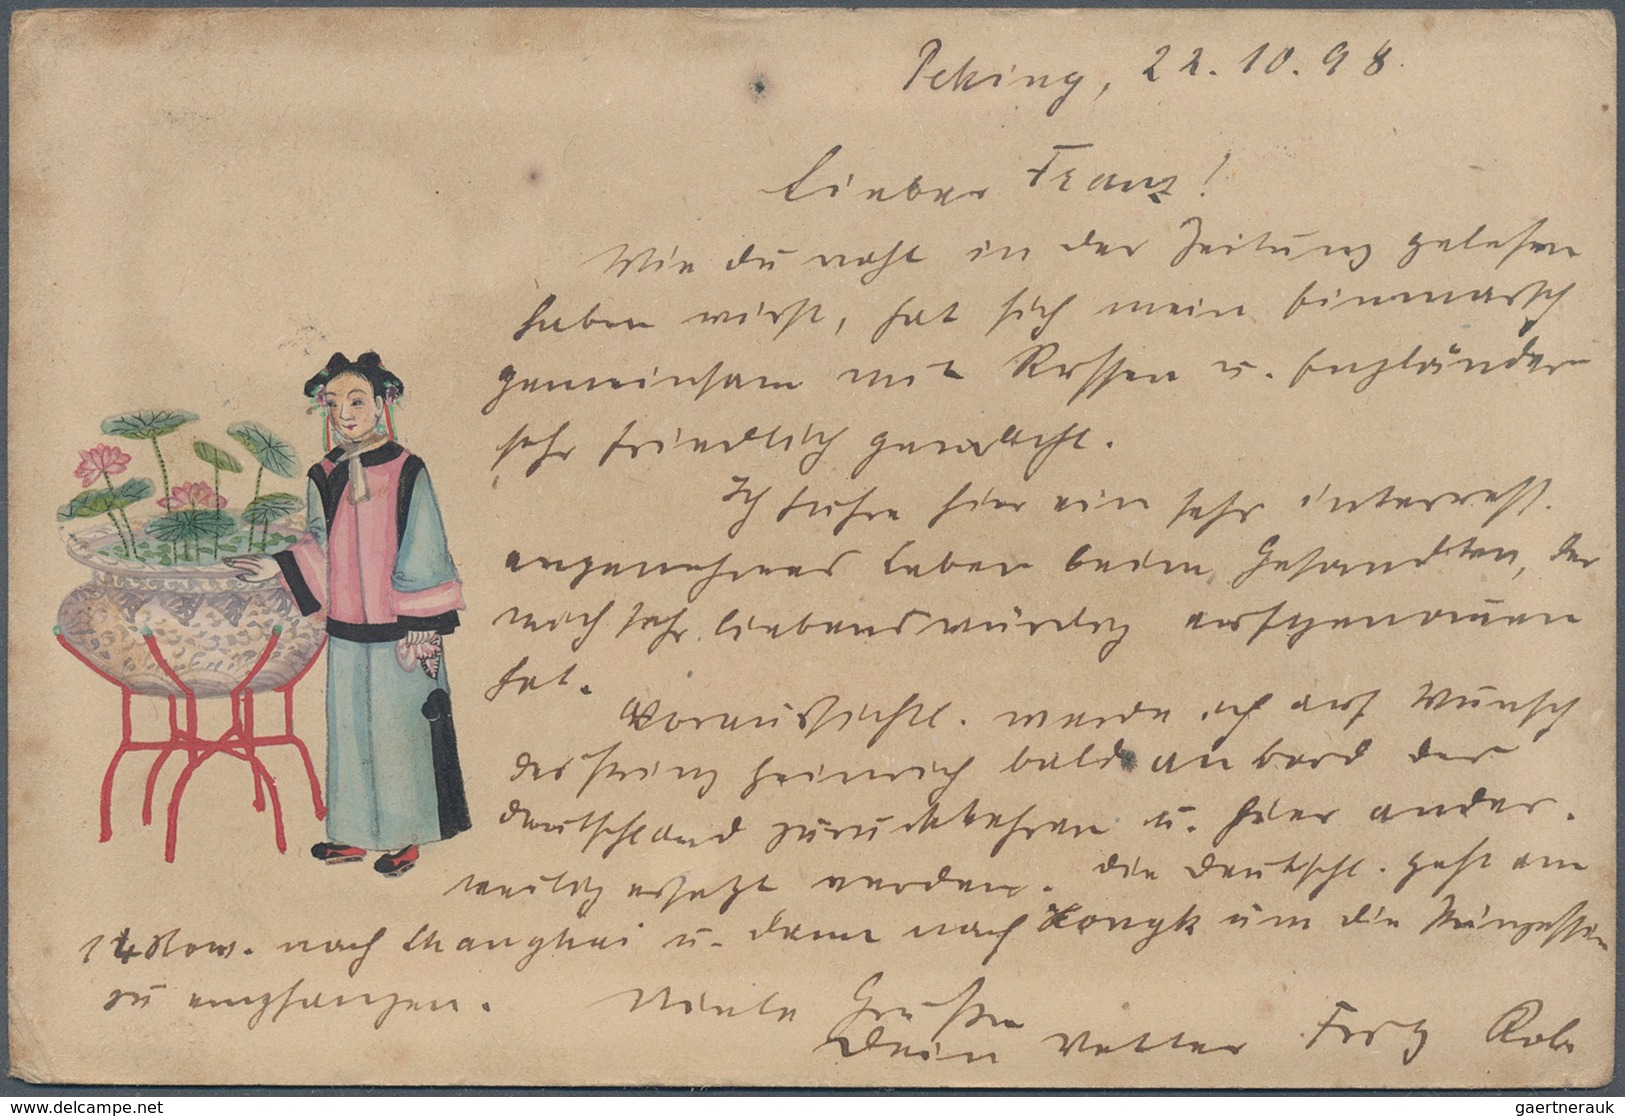 Peking, 22.10.98.
Lieber Franz!
Wie du wohl in der Zeitung gelesen
haben wirst, hat sich mein Einmarsch
gemeinsam mit Russen u. Engländern
sehr friedlich gemacht.
Ich führe hier ein sehr interess.
angenehmes Leben beim Gesandten, der
mich sehr liebenswürdig aufgenommen
hat.
Voraussichtl. werde ich auf Wunsch
des Prinz Heinrich bald an Bord der
Deutschland zurückkehren u. hier ander-
weitig ersetzt werden. Die Deutschl. geht am
14 Nov. nach Shanghai u. dann nach Hongk um die Prinzessin
zu empfangen. Viele Grüße
Dein Vetter Fritz
delcampe.net
gaertnerauk